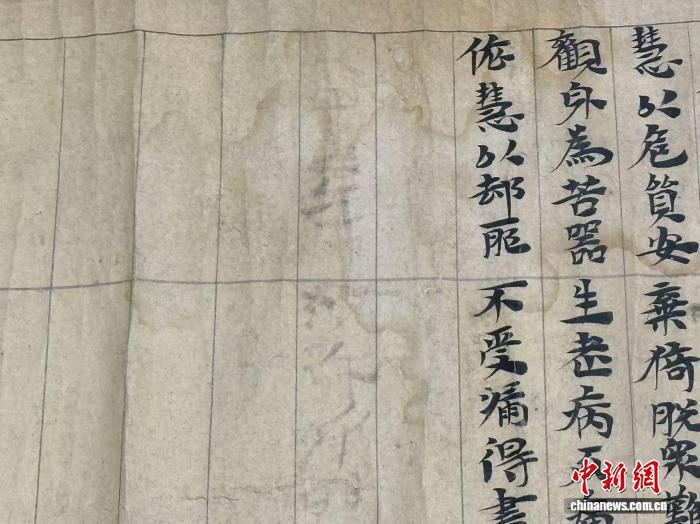 慧以危質安棄猗脱衆難
觀身為苦器生老病
依慧以却耶不受漏得
中新网
chinanews.com.cn